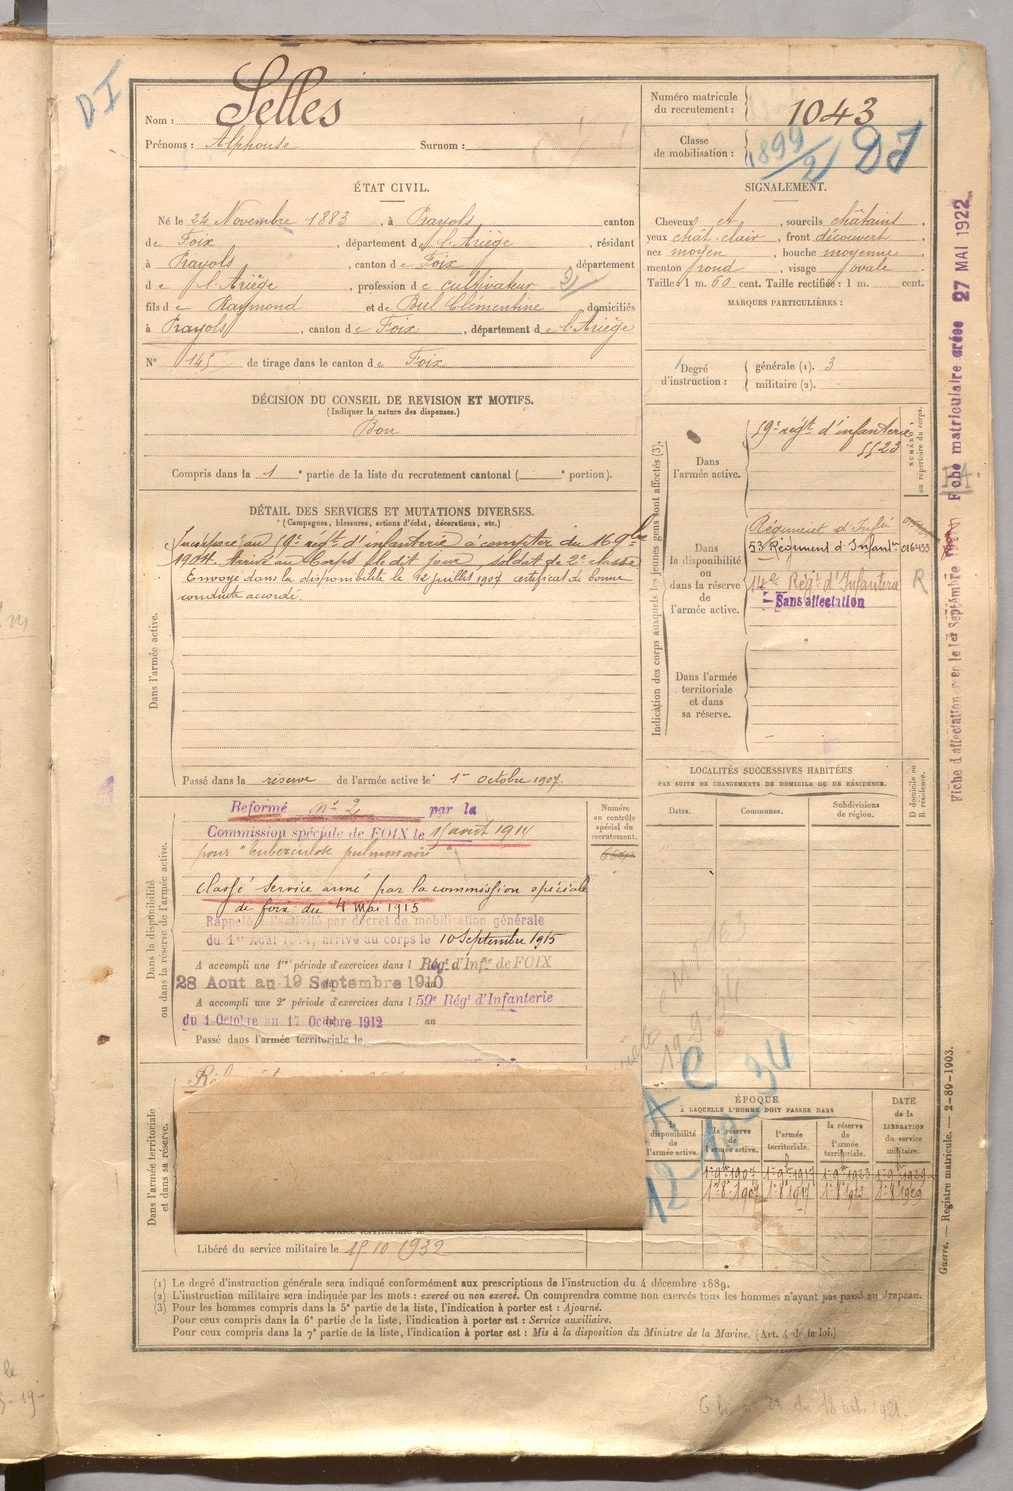 DI
Nom : Selles
Prénoms : Alphonse Surnom :
ÉTAT CIVIL.
Né le 24 Novembre 1883, à Prayols canton
de Foix, département de l'Ariège, résidant
à Prayols, canton de Foix département
de l'Ariège, profession de cultivateur
fils de Raymond et de Bul Clémentine domiciliés
à Prayols, canton de Foix, département de l'Ariège
N° 145 de tirage dans le canton de Foix
DÉCISION DU CONSEIL DE REVISION ET MOTIFS.
(Indiquer la nature des dispenses.)
Bon
Compris dans la 1e partie de la liste du recrutement cantonal ( e portion).
DÉTAIL DES SERVICES ET MUTATIONS DIVERSES.
(Campagnes, blessures, actions d'éclat, décorations, etc.)
Dans l'armée active.
Incorporé au 59e regt d'infanterie à compter du 16 9bre
1904. Arrivé au Corps le dit jour, soldat de 2e classe
Envoyé dans la disponibilité le 12 juillet 1907 certificat de bonne
conduite accordé.
Passé dans la réserve de l'armée active le 1er octobre 1907.
Dans la disponibilité
ou dans la réserve de l'armée active.
Reformé n° 2 par la
Commission spéciale de FOIX le août 1914
pour "tuberculose pulmonaire"
Classé Service armé par la commission spéciale
de foix du 4 Mai 1915
Rappelé à l'activité par décret de mobilisation générale
du 1er Aout 1914, arrivé au corps le 10 Septembre 1915
A accompli une 1re période d'exercices dans l Régt d'Infie de FOIX
28 Aout au 19 Septembre 1910
A accompli une 2e période d'exercices dans l 59e Régt d'Infanterie
du 1 Octobre au 17 Octobre 1912 au
Passé dans l'armée territoriale le
Dans l'armée territoriale
et dans sa réserve.
Libéré du service militaire le 15 10 1932
Numéro
au contrôle
spécial du
recrutement.
Numéro matricule
du recrutement : 1043
Classe
de mobilisation : 1899/2 DI
SIGNALEMENT.
Cheveux et, sourcils châtains,
yeux chât. clair, front découvert,
nez moyen, bouche moyenne,
menton rond, visage ovale.
Taille : 1 m. 60 cent. Taille rectifiée : 1 m. cent.
MARQUES PARTICULIÈRES :
Degré
d'instruction :
générale (1). 3
militaire (2).
Indication des corps auxquels les jeunes gens sont affectés (3).
NUMÉROS
au répertoire du corps.
Dans
l'armée active.
59e régt d'infanterie
5523
Dans
la disponibilité
ou
dans la réserve
de
l'armée active.
Régiment d'Infie
53 Régiment d'Infantie 016433
14e Régt d'Infanterie R
Sans affectation
Dans l'armée
territoriale
et dans
sa réserve.
LOCALITÉS SUCCESSIVES HABITÉES
PAR SUITE DE CHANGEMENTS DE DOMICILE OU DE RÉSIDENCE.
Dates.
Communes.
Subdivisions
de région.
D domicile ou
R résidence.
ÉPOQUE
À LAQUELLE L'HOMME DOIT PASSER DANS
disponibilité
de
l'armée active.
la réserve
de
l'armée active.
l'armée
territoriale.
la réserve
de
l'armée
territoriale.
DATE
de la
LIBÉRATION
du service
militaire.
1er 9bre 1907 1er 9bre 1917 1er 9bre 1923 1er 9bre 1929
1er 8bre 1907 1er 8bre 1917 1er 8bre 1923 1er 8bre 1929
Fiche matriculaire créée 27 MAI 1922
Fiche d'affectation créée le 1er Septembre
Guerre. — Registre matricule. — 2-89-1903.
(1) Le degré d'instruction générale sera indiqué conformément aux prescriptions de l'instruction du 4 décembre 1889.
(2) L'instruction militaire sera indiquée par les mots : exercé ou non exercé. On comprendra comme non exercés tous les hommes n'ayant pas passé au drapeau.
(3) Pour les hommes compris dans la 5e partie de la liste, l'indication à porter est : Ajourné.
Pour ceux compris dans la 6e partie de la liste, l'indication à porter est : Service auxiliaire.
Pour ceux compris dans la 7e partie de la liste, l'indication à porter est : Mis à la disposition du Ministre de la Marine. (Art. 4 de la loi.)